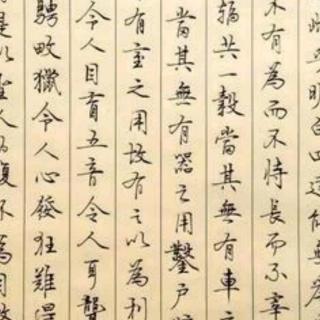 乎明白四達能無為
不有為而不恃長而不宰
輻共一轂當其無有車之
當其無有器之用鑿戶牖
有室之用故有之以為利
令人目盲五音令人耳聾
騁畋獵令人心發狂難得
是以聖人為腹不為目故